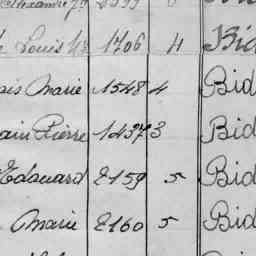 Louis 1706 4 Bid
Marie 1548 4 Bid
Pierre 1437 3 Bid
Edouard 2159 5 Bid
Marie 2160 5 Bid